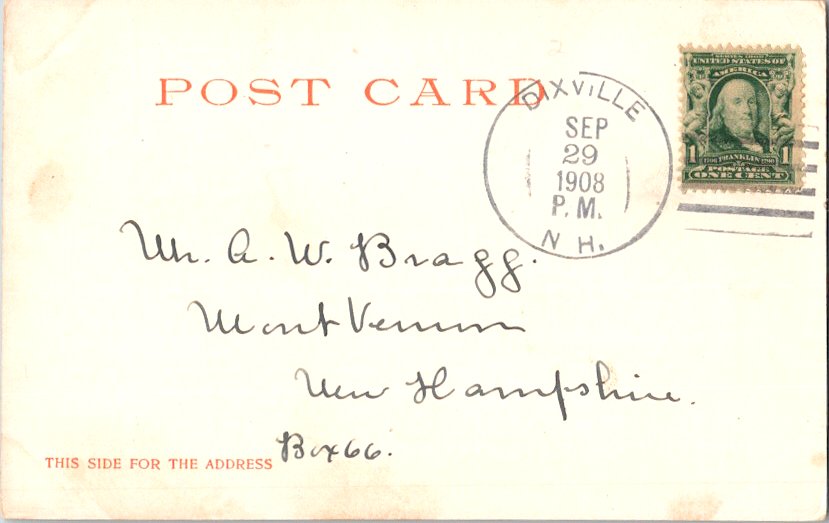 POST CARD
DIXVILLE
SEP
29
1908
P.M.
N H.
SERIES 1902
UNITED STATES OF
AMERICA
1 1706 FRANKLIN 1790 1
POSTAGE
ONE CENT
Mr. A. W. Bragg.
Mont Vernon
New Hampshire.
Box 66.
THIS SIDE FOR THE ADDRESS